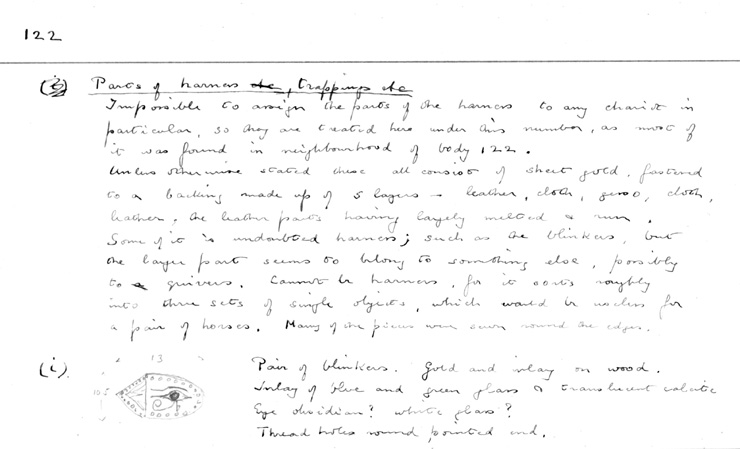 122
(3) Parts of harness etc, trappings etc
Impossible to assign the parts of the harness to any chariot in
particular, so they are treated here under this number, as most of
it was found in neighbourhood of body 122.
Unless otherwise stated these all consist of sheet gold, fastened
to a backing made up of 5 layers - leather, cloth, gesso, cloth,
leather, the leather parts having largely melted & run.
Some of it is undoubted harness; such as the blinkers, but
the larger part seems to belong to something else, possibly
to quivers. Cannot be harness, for it sorts roughly
into three sets of single objects, which would be useless for
a pair of horses. Many of the pieces were sewn round the edges.
(i) 13 Pair of blinkers. Gold and inlay on wood.
10.5 Inlay of blue and green glass & translucent calcite
Eye obsidian? white glass?
Thread holes round pointed end.